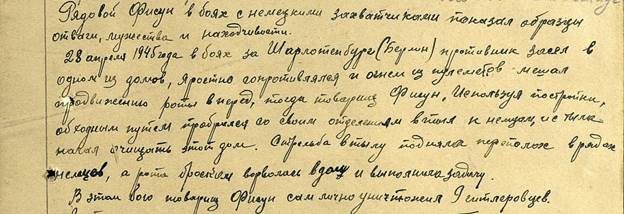 Рядовой Фисун в боях с немецкими захватчиками показал образцы
отваги, мужества и находчивости.
28 апреля 1945 года в боях за Шарлотенбург (Берлин) противник засел в
одном из домов, яростно сопротивлялся и огнем из пулеметов мешал
продвижению роты вперед, тогда товарищ Фисун, используя постройки,
обходным путем пробрался со своим отделением в тыл к немцам, и с тыла
начал очищать этот дом. Стрельба в тылу подняла переполох в рядах
немцев, а рота броском ворвалась в дом и выполнила задачу.
В этом бою товарищ Фисун сам лично уничтожил 9 гитлеровцев.